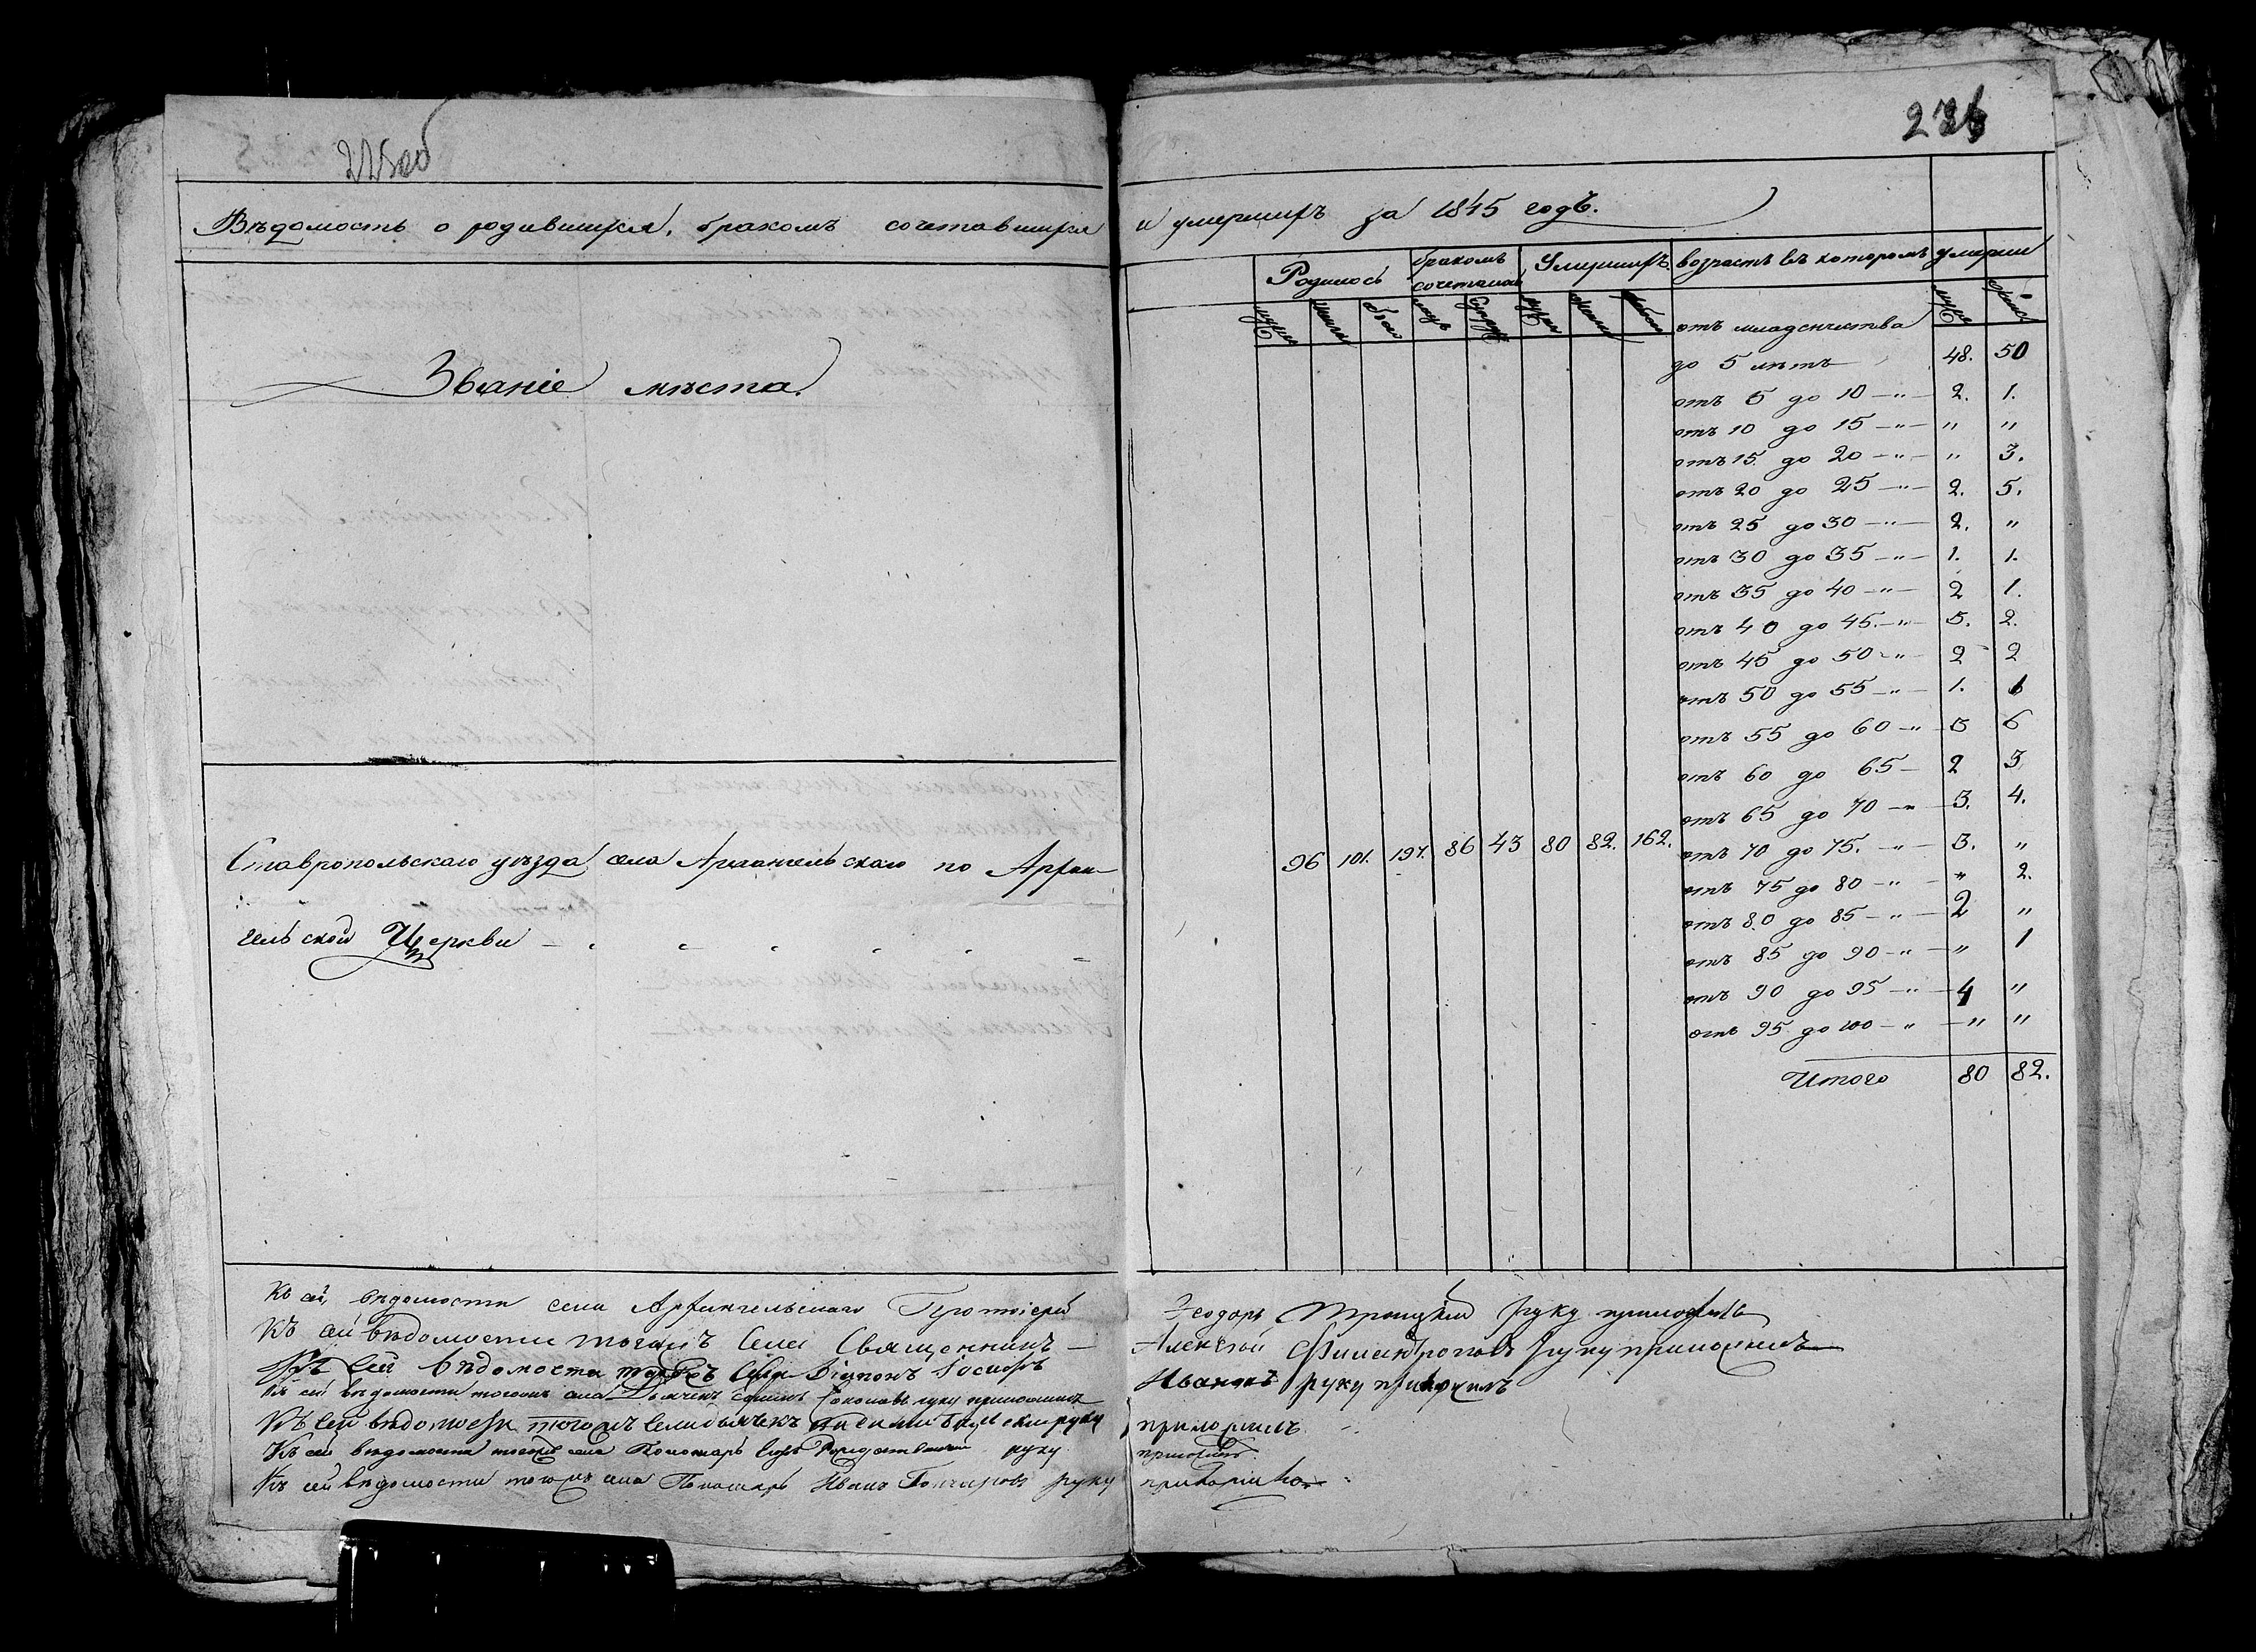 225об
226
Вѣдомость о родившихся, бракомъ сочетавшихся и умершихъ за 1845 годъ.
Званіе мѣста.
Родилось
бракомъ сочетались
Умершихъ
возрастъ въ которомъ умерли
отъ младенчества
до 5 лѣтъ 48. 50
отъ 5 до 10 —"— 2. 1.
отъ 10 до 15 —"— " "
отъ 15 до 20 —"— " 3.
отъ 20 до 25 —"— 2. 5.
отъ 25 до 30 —"— 2. "
отъ 30 до 35 —"— 1. 1.
отъ 35 до 40 —"— 2 1.
отъ 40 до 45. —"— 5. 2.
отъ 45 до 50 —"— 2 2
отъ 50 до 55 —"— 1. 1
отъ 55 до 60 —"— 3 6
отъ 60 до 65 — 2 3
отъ 65 до 70 —"— 3. 4.
Ставропольскаго уѣзда села Архангельскаго по Архан-
гельской Церкви
96 101. 197. 86 43 80 82. 162.
отъ 70 до 75. —"— 3. "
отъ 75 до 80 —"— " 2.
отъ 80 до 85 —"— 2 "
отъ 85 до 90 —"— " 1
отъ 90 до 95 —"— 4 "
отъ 95 до 100 —"— " "
Итого 80 82.
Къ сей вѣдомости села Архангельскаго Протоіерей Ѳеодоръ Троицкій руку приложилъ
Къ сей вѣдомости тогожъ села Священникъ Алексѣй Филантроповъ руку приложилъ
Къ сей вѣдомости тогожъ села Діаконъ Іосифъ Ивановъ руку приложилъ
Къ сей вѣдомости тогожъ села Дьячекъ руку приложилъ
Къ сей вѣдомости тогожъ села дьячекъ руку приложилъ
Къ сей вѣдомости тогожъ села Пономарь Рождественскій руку приложилъ
Къ сей вѣдомости тогожъ села Пономарь Иванъ Гончаровъ руку приложилъ